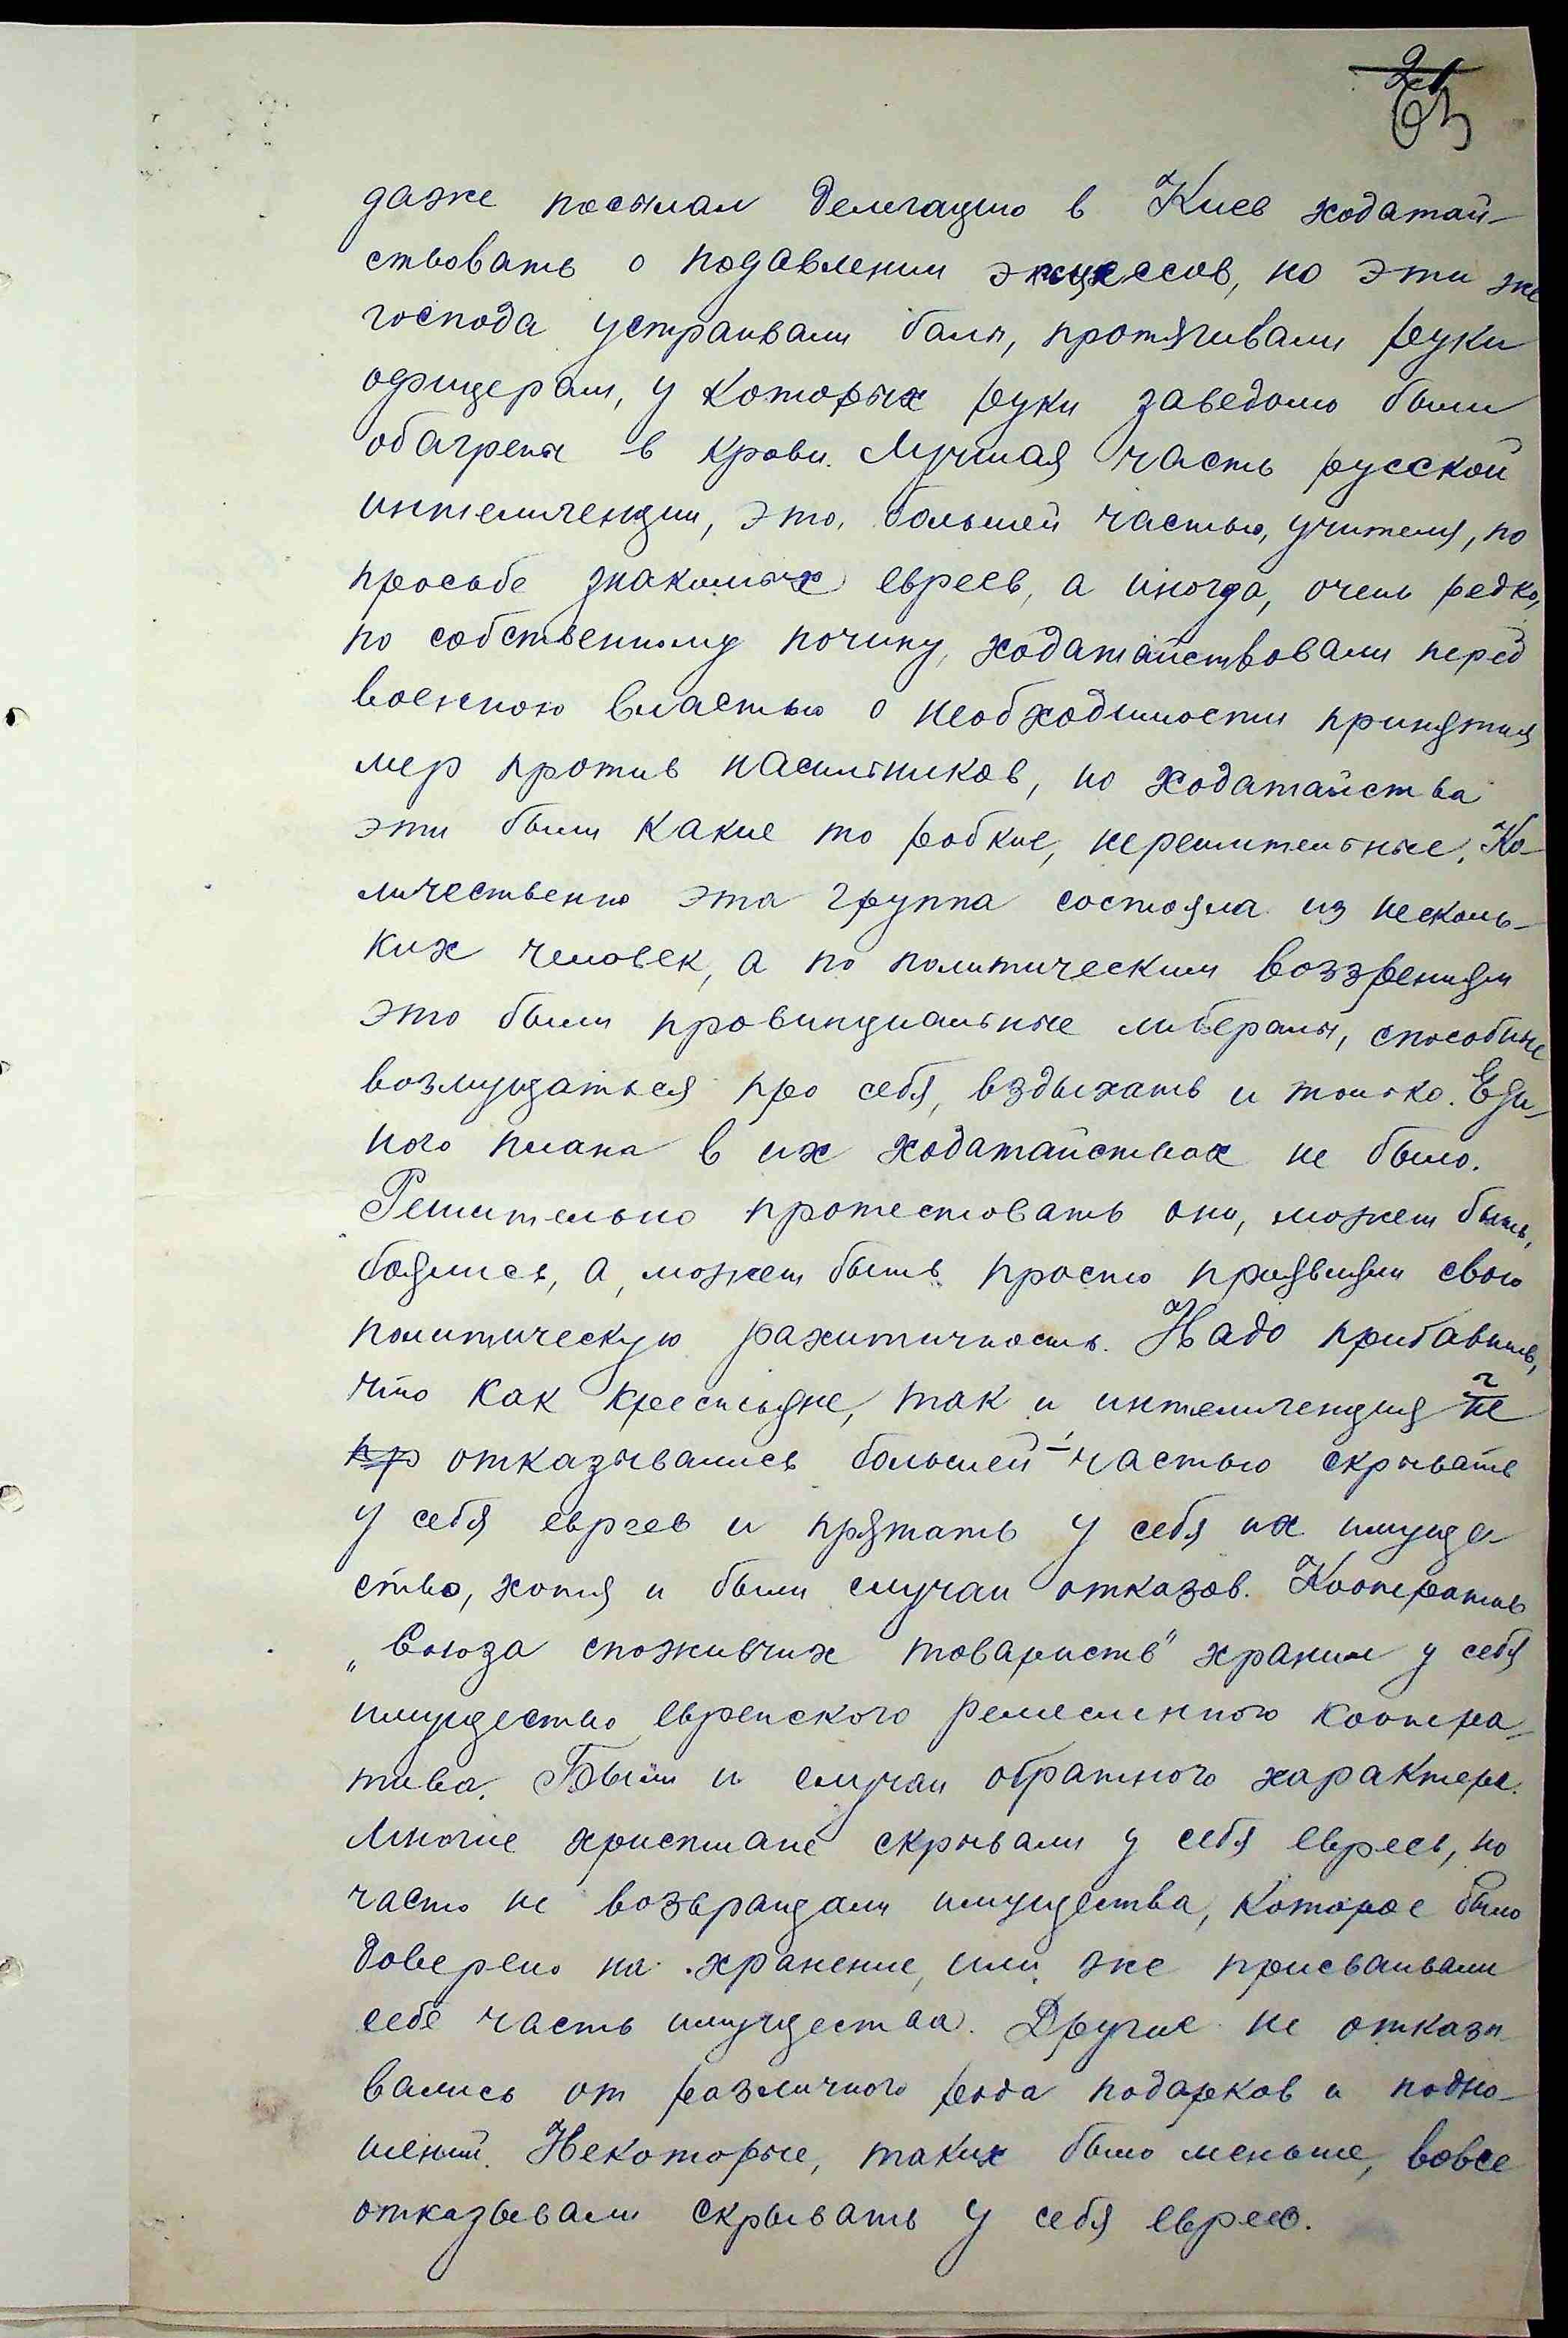 даже посылал делегацию в Киев ходатай-
ствовать о подавлении эксцессов, но эти же
господа устраивали балы, протягивали руки
офицерам, у которых руки заведомо были
обагрены в крови. Лучшая часть русской
интеллигенции, это, большей частью, учителя, по
просьбе знакомых евреев, а иногда, очень редко,
по собственному почину, ходатайствовали перед
военною властью о необходимости принятия
мер против насильников, но ходатайства
эти были какие то робкие, нерешительные. Ко-
личественно эта группа состояла из несколь-
ких человек, а по политическим воззрениям
это были провинциальные либералы, способные
возмущаться про себя, вздыхать и только. Еди-
ного плана в их ходатайствах не было.
Решительно протестовать они, может быть,
боялись, а, может быть просто проявляли свою
политическую рахитичность. Надо прибавить,
что как крестьяне, так и интеллигенция не
пр отказывались большей частью скрывать
у себя евреев и прятать у себя их имуще-
ство, хотя и были случаи отказов. Кооператив
„Союза споживчих товариств" хранил у себя
имущество еврейского ремесленного коопера-
тива. Были и случаи обратного характера.
Многие христиане скрывали у себя евреев, но
часто не возвращали имущества, которое было
доверено на хранение, или же присваивали
себе часть имущества. Другие не отказы-
вались от различного рода подарков и подно-
шений. Некоторые, таких было меньше, вовсе
отказывали скрывать у себя евреев.